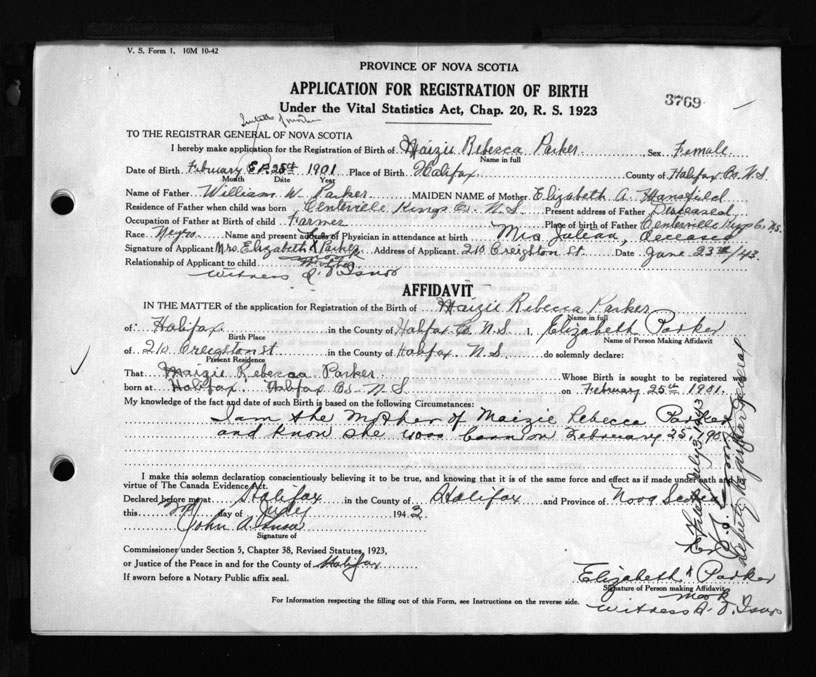 V. S. Form 1. 10M 10-42
PROVINCE OF NOVA SCOTIA
APPLICATION FOR REGISTRATION OF BIRTH
3769
Under the Vital Statistics Act, Chap. 20, R. S. 1923
TO THE REGISTRAR GENERAL OF NOVA SCOTIA
I hereby make application for the Registration of Birth of Maizie Rebecca Parker Sex Female
Name in full
Date of Birth February 25th 1901 Place of Birth Halifax County of Halifax Co. N.S.
Month Date Year
Name of Father William W. Parker MAIDEN NAME of Mother Elizabeth A. Mansfield
Residence of Father when child was born Centerville Kings Co. N.S. Present address of Father Deceased
Occupation of Father at Birth of child Farmer Place of birth of Father Centerville Kings Co. N.S.
Race Negro Name and present address of Physician in attendance at birth Mrs Julean, deceased
Signature of Applicant Mrs. Elizabeth X Parker Address of Applicant 210 Creighton St. Date June 23rd/43
Relationship of Applicant to child Mother
Witness
AFFIDAVIT
IN THE MATTER of the application for Registration of the Birth of Maizie Rebecca Parker
Name in full
of Halifax in the County of Halifax Co N.S. I, Elizabeth Parker
Birth Place Name of Person Making Affidavit
of 210 Creighton St in the County of Halifax N.S. do solemnly declare:
Present Residence
That Maizie Rebecca Parker Whose Birth is sought to be registered
born at Halifax Halifax Co. N.S on February 25th 1901.
My knowledge of the fact and date of such Birth is based on the following Circumstances:
I am the Mother of Maizie Rebecca Parker
and know she was born on February 25, 190
I make this solemn declaration conscientiously believing it to be true, and knowing that it is of the same force and effect as if made under oath and
virtue of The Canada Evidence Act.
Declared before me at Halifax in the County of Halifax and Province of Nova Scotia
this 2nd day of July 1943
John A
Signature of
Commissioner under Section 5, Chapter 38, Revised Statutes, 1923,
or Justice of the Peace in and for the County of Halifax
If sworn before a Notary Public affix seal.
Elizabeth X Parker
Signature of Person making Affidavit
Mark
Witness
For Information respecting the filling out of this Form, see Instructions on the reverse side.
Deputy Registrar General